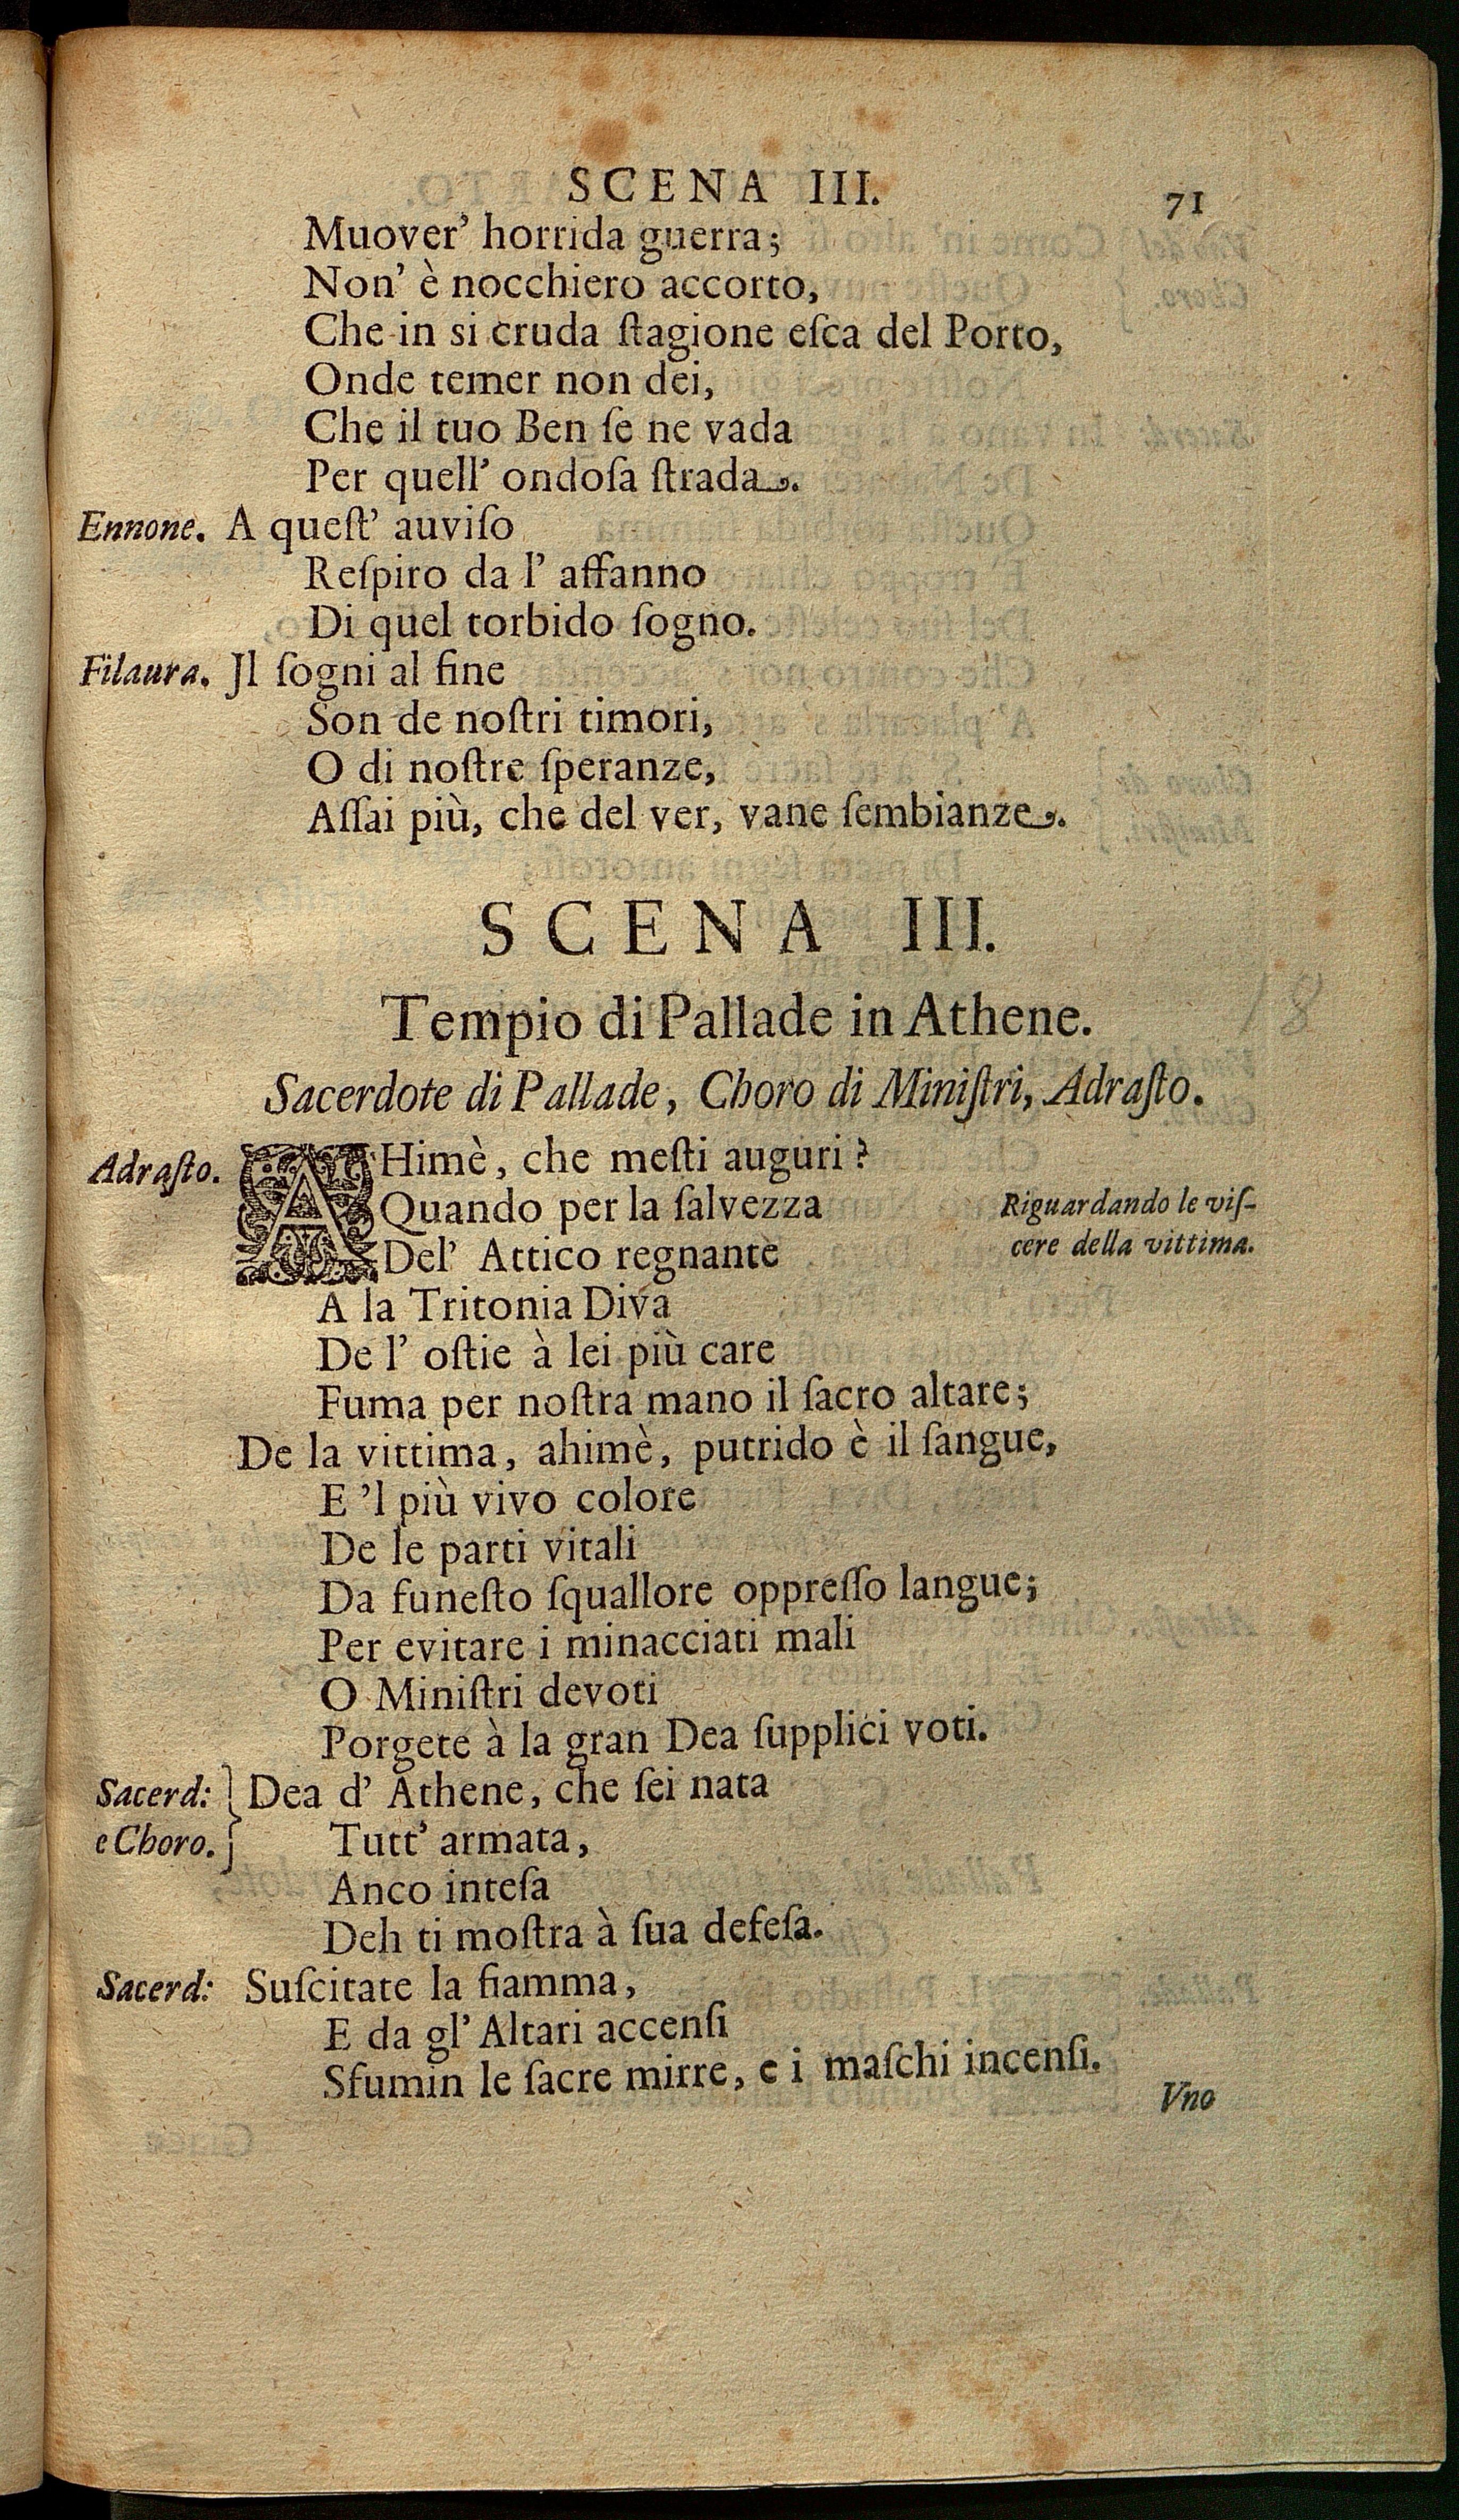 SCENA III. 71
Muover' horrida guerra;
Non' è nocchiero accorto,
Che in si cruda ſtagione eſca del Porto,
Onde temer non dei,
Che il tuo Ben ſe ne vada
Per quell' ondoſa ſtrada.
Ennone. A queſt' auviſo
Reſpiro da l' affanno
Di quel torbido ſogno.
Filaura. Jl ſogni al fine
Son de noſtri timori,
O di noſtre ſperanze,
Aſſai più, che del ver, vane ſembianze.
SCENA III.
Tempio di Pallade in Athene.
18
Sacerdote di Pallade, Choro di Miniſtri, Adraſto.
Adraſto. AHimè, che meſti auguri?
Quando per la ſalvezza
Riguardando le viſ-
Del' Attico regnante
cere della vittima.
A la Tritonia Diva
De l' oſtie à lei più care
Fuma per noſtra mano il ſacro altare;
De la vittima, ahimè, putrido è il ſangue,
E 'l più vivo colore
De le parti vitali
Da funeſto ſquallore oppreſſo langue;
Per evitare i minacciati mali
O Miniſtri devoti
Porgete à la gran Dea ſupplici voti.
Sacerd: } Dea d' Athene, che ſei nata
e Choro. } Tutt' armata,
Anco inteſa
Deh ti moſtra à ſua defeſa.
Sacerd: Suſcitate la fiamma,
E da gl' Altari accenſi
Sfumin le ſacre mirre, e i maſchi incenſi.
Vno